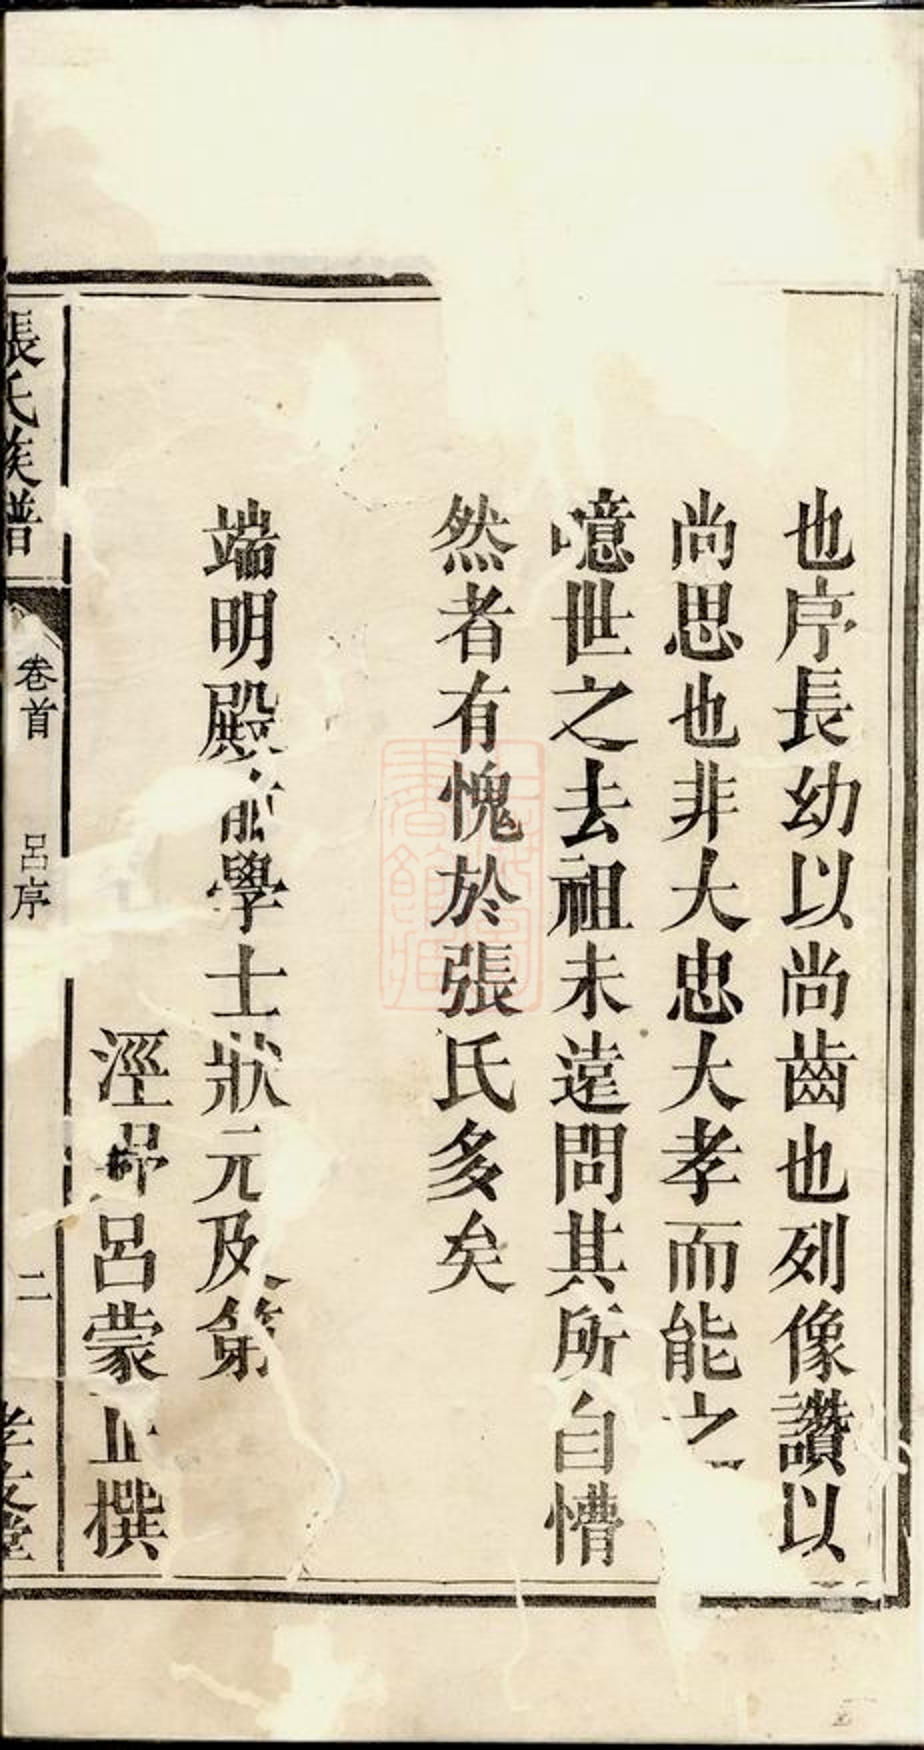 也序長幼以尚齒也列像讚以
尚思也非大忠大孝而能之
噫世之去祖未遠問其所自懵
然者有愧於張氏多矣
端明殿前學士狀元及第
涇 呂蒙正撰
張氏族譜
卷首 呂序
二
孝友堂